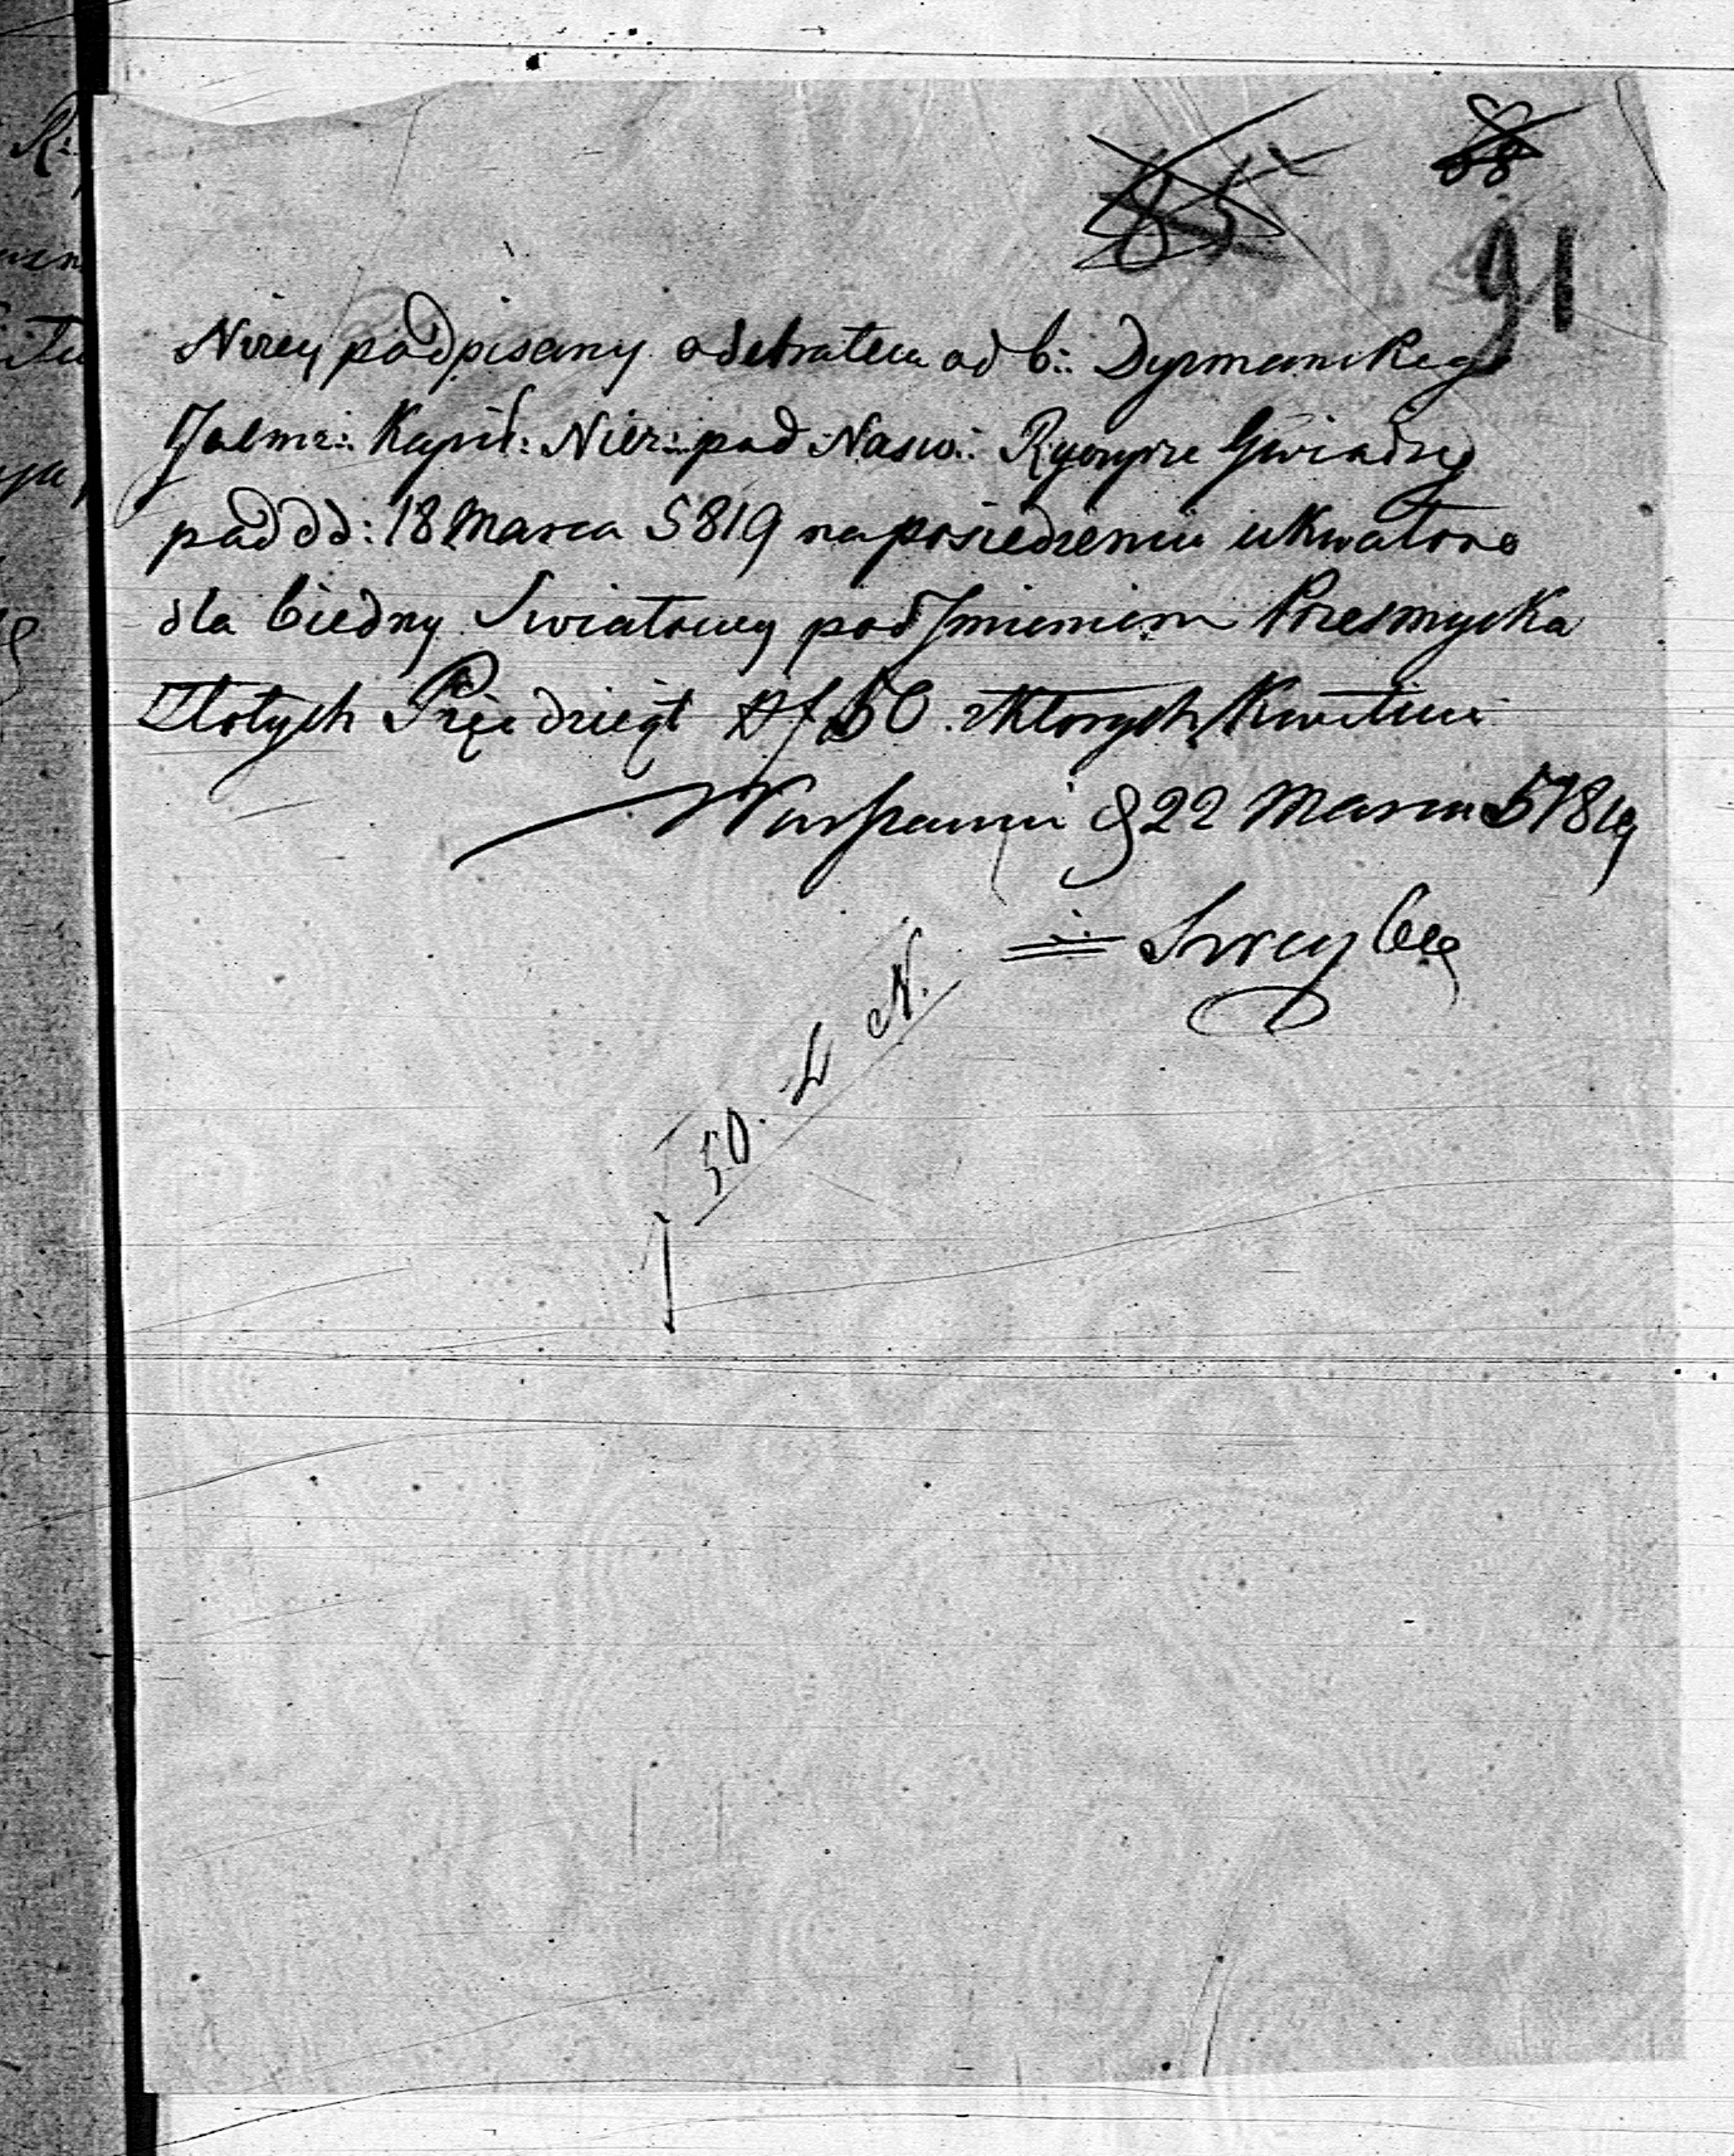 85
88
91
Nizey podpisany odebrałem od b∴ Dyrmanskiego
Jałmż: Kapit: Niez: pod Nasw: Rycerze Gwiazdy
pod dd: 18 Marca 5819 na posiedzeniu ukwalono
dla biedny Swiatowey pod Jmieniem Przesmycka
Złotych Pięcdziesąt Zł 50 z ktorych kwituie
Warszawa d 22 Marca 5819
Swey
50. N.